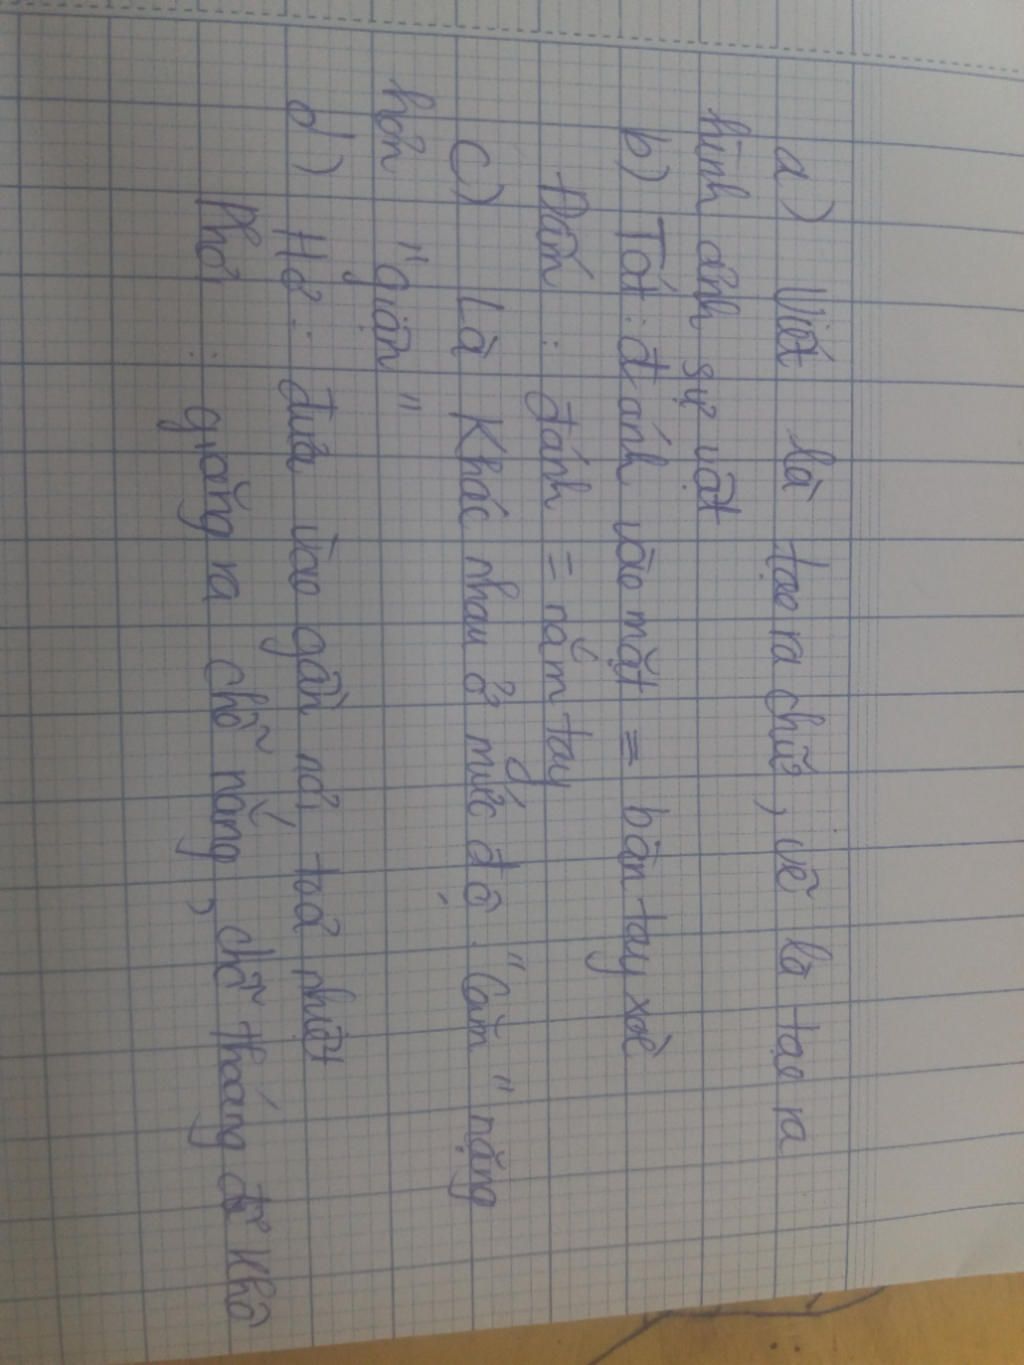 a) Viết là tạo ra chữ, vẽ là tạo ra
hình ảnh sự vật
b) Tát: đánh vào mặt = bàn tay xoè
Đấm: đánh = nắm tay
c) Là khác nhau ở mức độ. "Cằn" nặng
hơn "giận"
d) Hơ: đưa vào gần nơi toả nhiệt
Phơi: giăng ra chỗ nắng, chỗ thoáng để khô